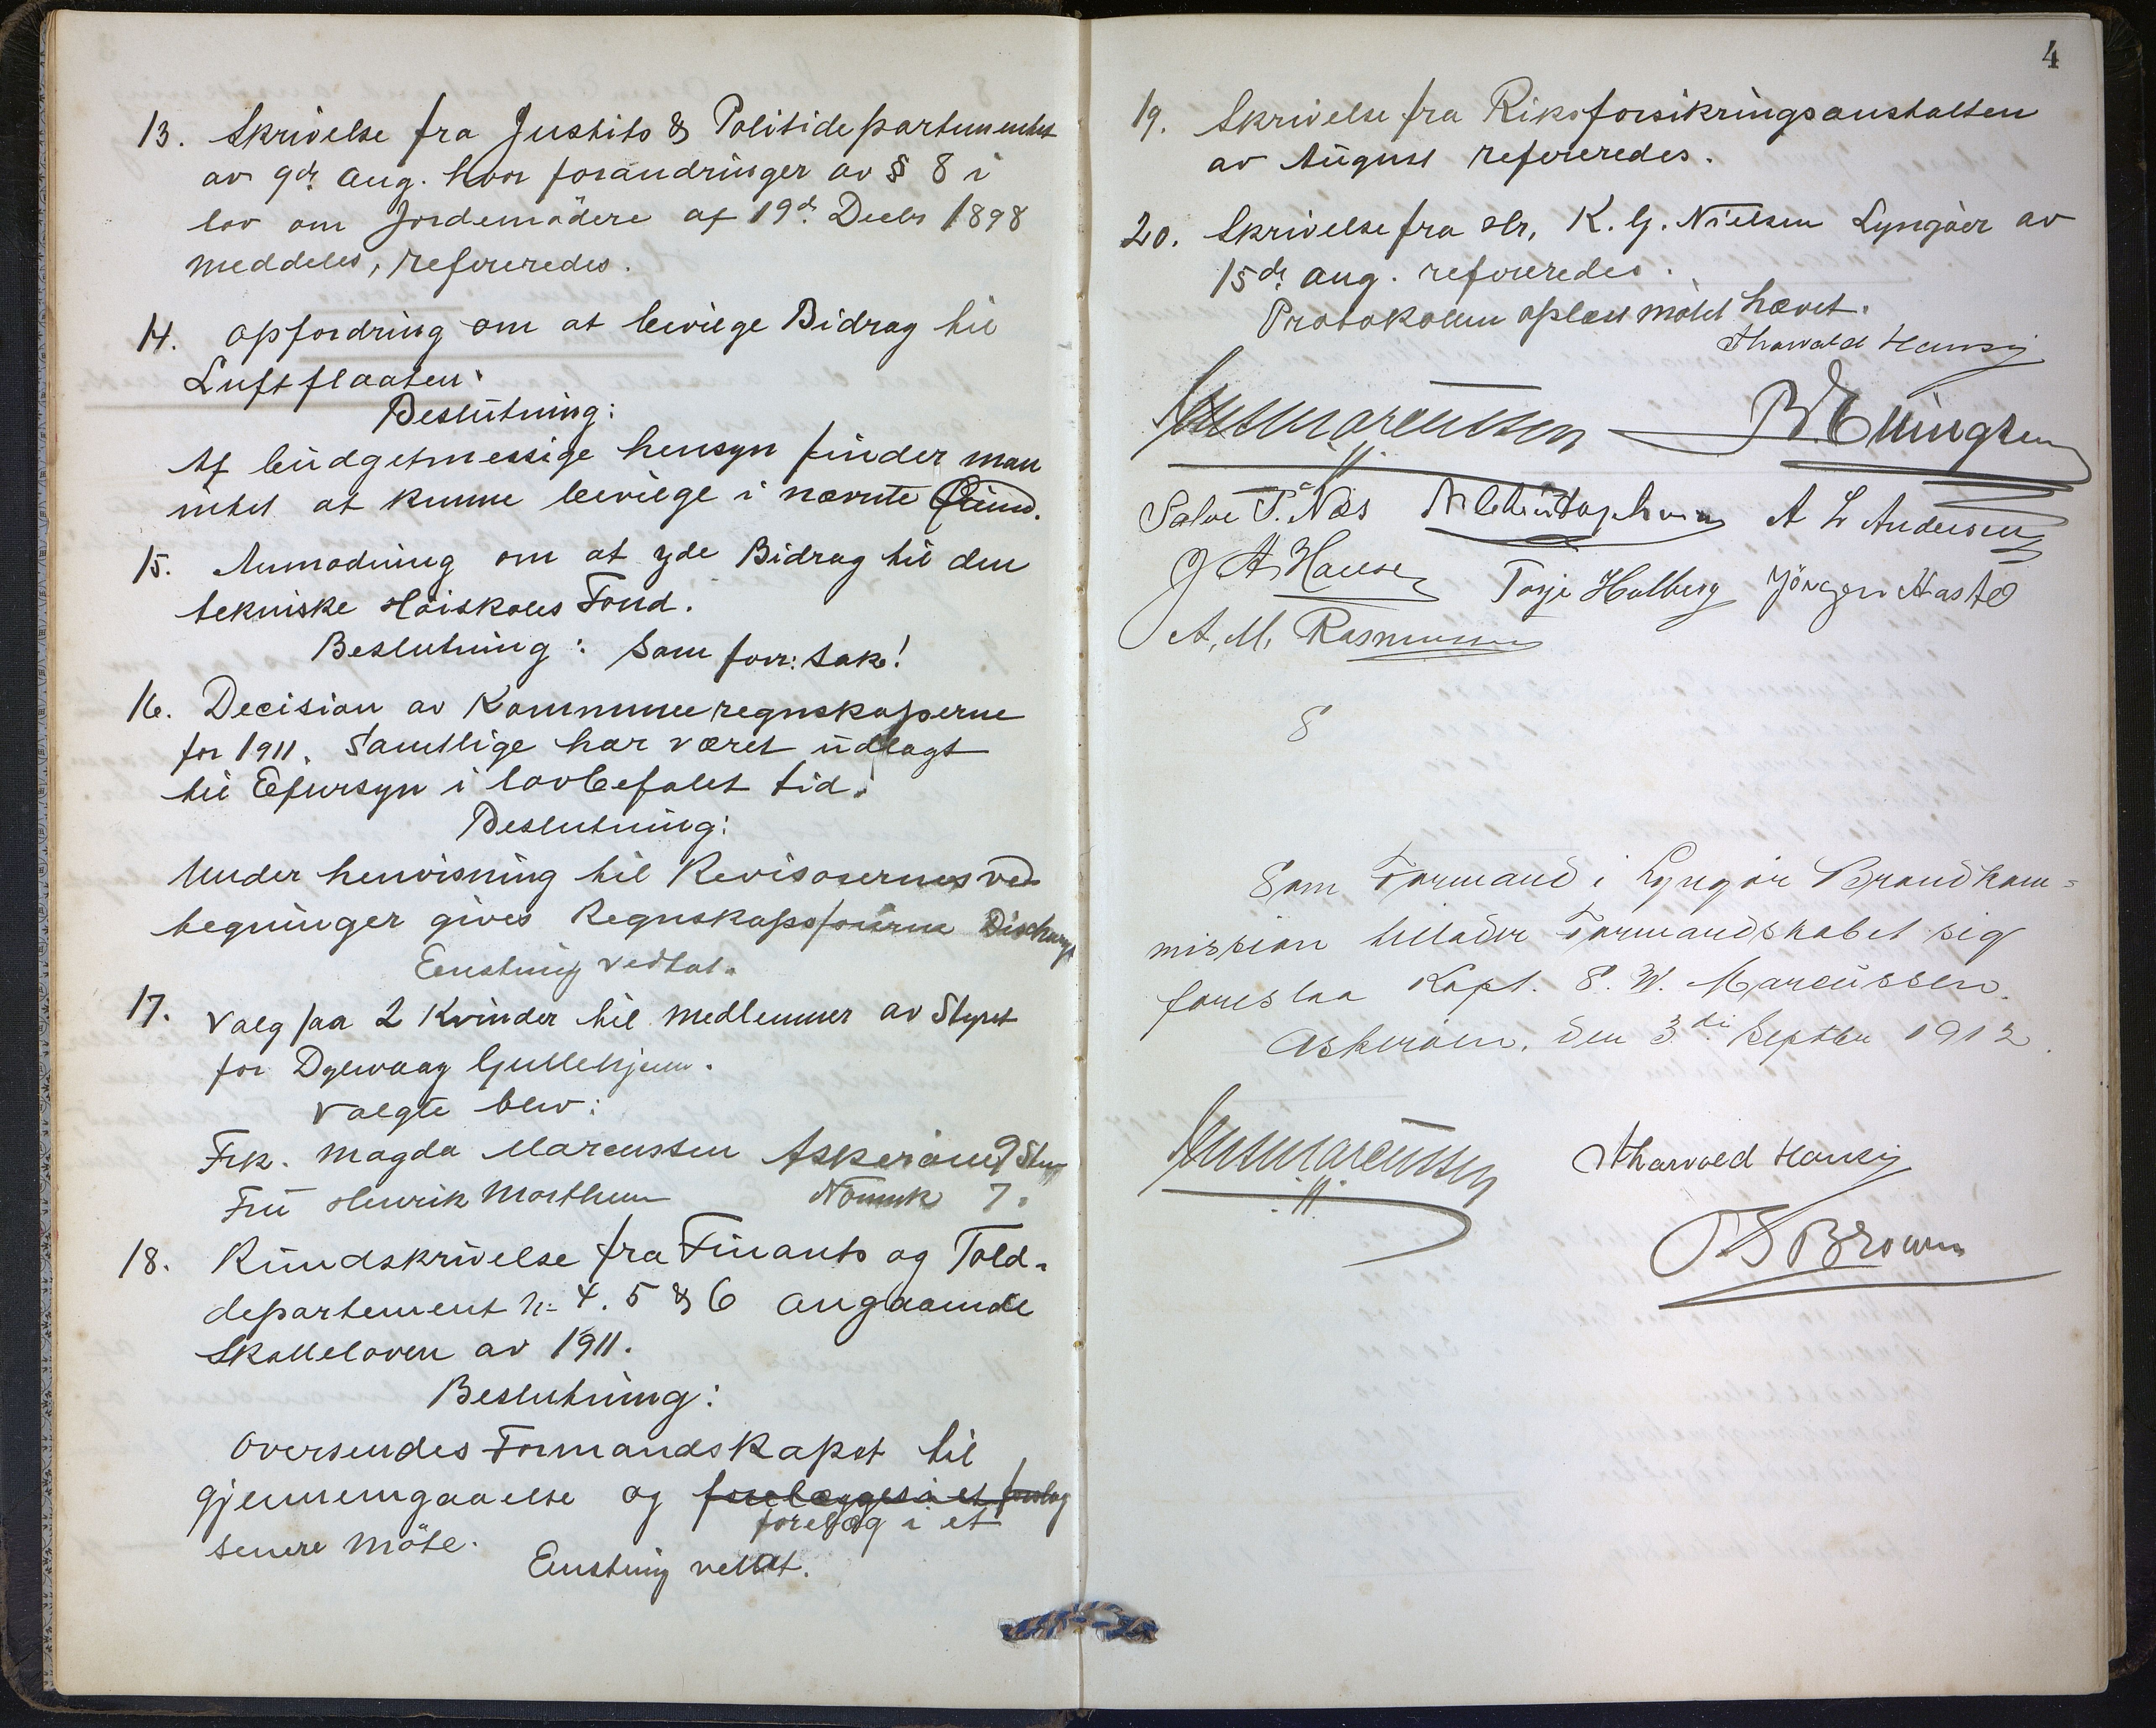 13. Skrivelse fra Justits & Politidepartementet
av 9de Aug. hvor forandringer av § 8 i
lov om Jordemödere af 19d. Decbr 1898
meddeles, refereredes.
14. Opfordring om at bevilge Bidrag til
Luftflaaten.
Beslutning:
Af budgetmessige hensyn finder man
intet at kunne bevilge i nævnte Öiem.
15. Anmodning om at yde Bidrag til den
tekniske Höiskoles Fond.
Beslutning: Som forr: Sak!
16. Decision av Kommuneregnskaperne
for 1911. Samtlige har været udlagt
til Eftersyn i lovbefalet tid.
Beslutning:
Under henvisning til Revisorernes ved-
tegninger gives Regnskapsförerne Discharge
Enstemig vedtat.
17. Valg paa 2 Kvinder til Medlemmer av Styret
for Dypvaag Gamlehjem.
Valgte blev:
Frk. Magda Marcussen Askeröen 9 Stem
Frü Henrik Morthen 7.
18. Rundskrivelse fra Finants og Told-
departement No 4. 5 & 6 angaaende
Skatteloven av 1911.
Beslutning:
Oversendes Formandskapet til
gjennemgaaelse og forelægges i et forslag
forelæg i et
senere Möte.
Enstemig vedtat.
4
19. Skrivelse fra Riksforsikringsanstalten
av August refereredes.
20. Skrivelse fra Hr. K. G. Nielsen Lyngöer av
15de Aug. refereredes.
Protokollen oplæst mötet hævet.
Tharvald Hansen
Marcussen B. Ellingsen
Salve T. Næs A L Andersen
G A Hansen Torje Holberg Jörgen Hasteð
A. M. Rasmussen
S
Som Formand i Lyngör Brandkom-
mission tillader Formandskabet sig
foreslaa Kapt. S. W. Marcüssen.
Askeröen, den 3die Septbr 1912.
Marcussen Tharvald Hansen
T S Brown